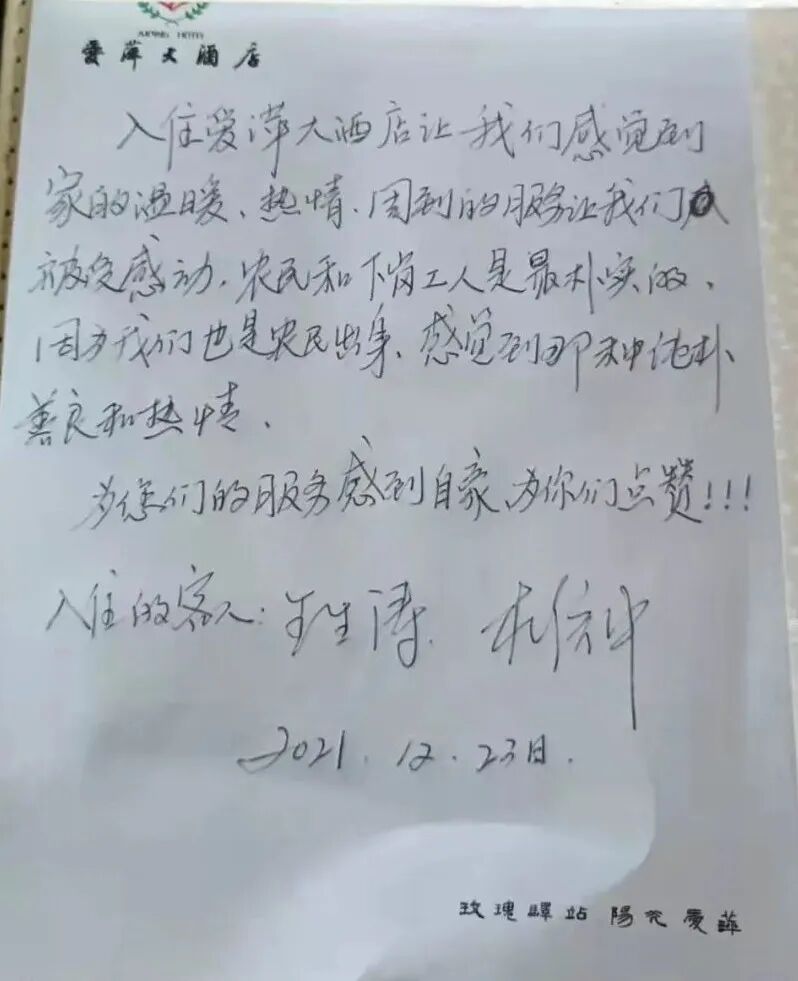 AIPING HOTEL
愛萍大酒店
入住爱萍大酒店让我们感觉到
家的温暖、热情、周到的服务让我们
被受感动，农民和下岗工人是最朴实的、
因为我们也是农民出身、感觉到那种纯朴
善良和热情、
为您们的服务感到自豪、为你们点赞!!!
入住的客人: 王生涛
2021.12.23日.
玫瑰驛站 陽光愛萍